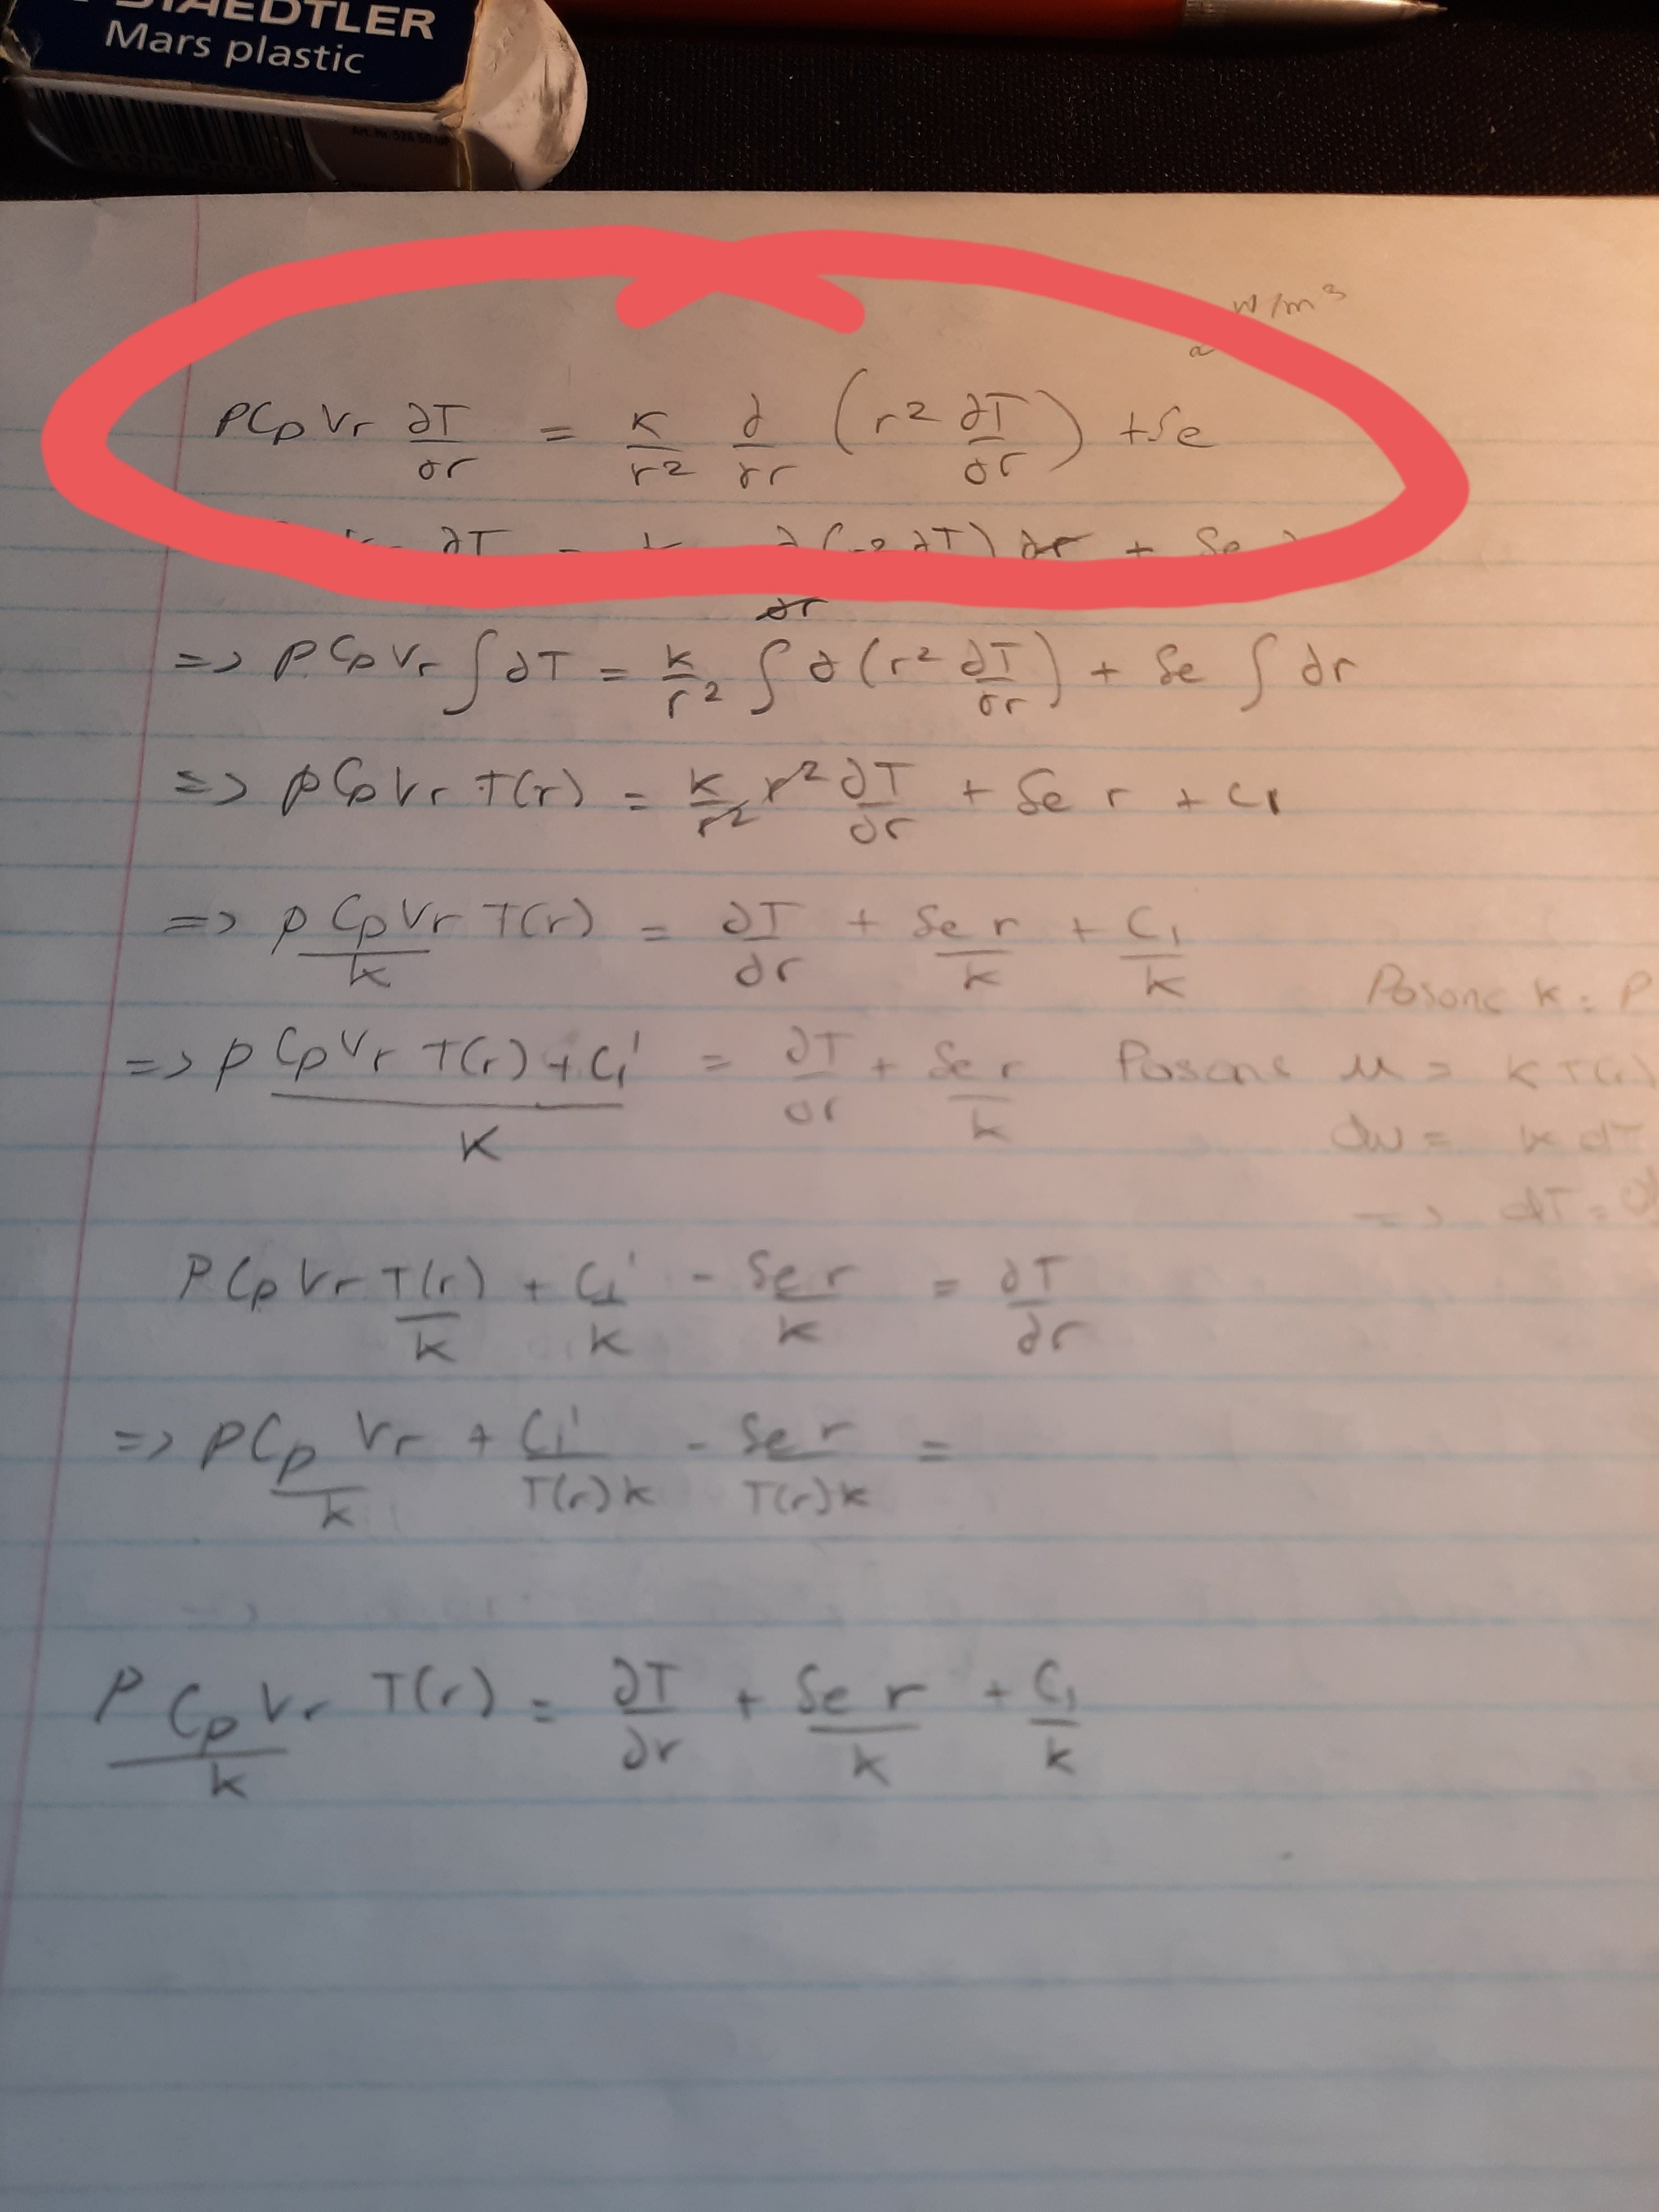 STAEDTLER
Mars plastic
W/m³
ρCp Vr ∂T/∂r = K/r² ∂/∂r (r² ∂T/∂r) + Se
∂T = ∂(r² ∂T) ∂r + Se
∂r
=> ρ Cp Vr ∫ ∂T = k/r² ∫ ∂(r² ∂T/∂r) + Se ∫ ∂r
=> ρ Cp Vr T(r) = k/r² r² ∂T/∂r + Se r + C1
=> ρ Cp Vr/k T(r) = ∂T/∂r + Se r/k + C1/k
Posons k = ρ
=> ρ Cp Vr T(r) + C1'/K = ∂T/∂r + Se r/k Posons u = k T(r)
du = k dT
=> dT =
ρ Cp Vr T(r)/k + C1'/k - Se r/k = ∂T/∂r
=> ρ Cp/k Vr + C1'/T(r)k - Se r/T(r)k =
=>
ρ Cp Vr/k T(r) = ∂T/∂r + Se r/k + C1/k